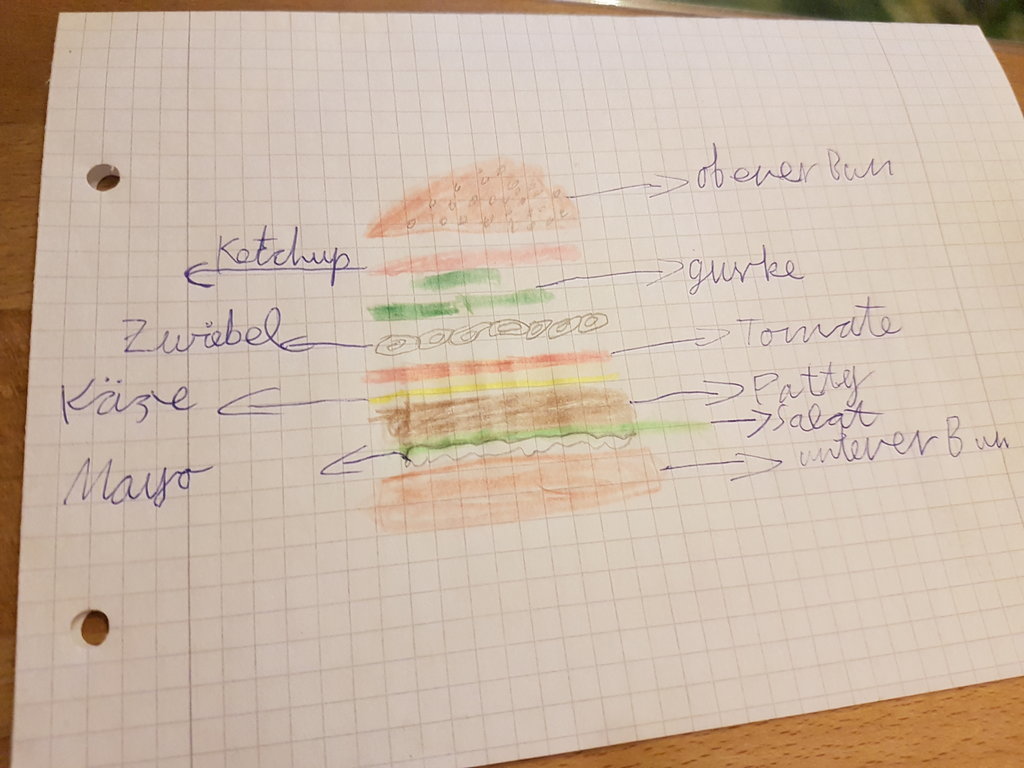 obener Bun
Ketchup
gurke
Zwiebel
Tomate
Käse
Patty
Salat
unterer Bun
Mayo